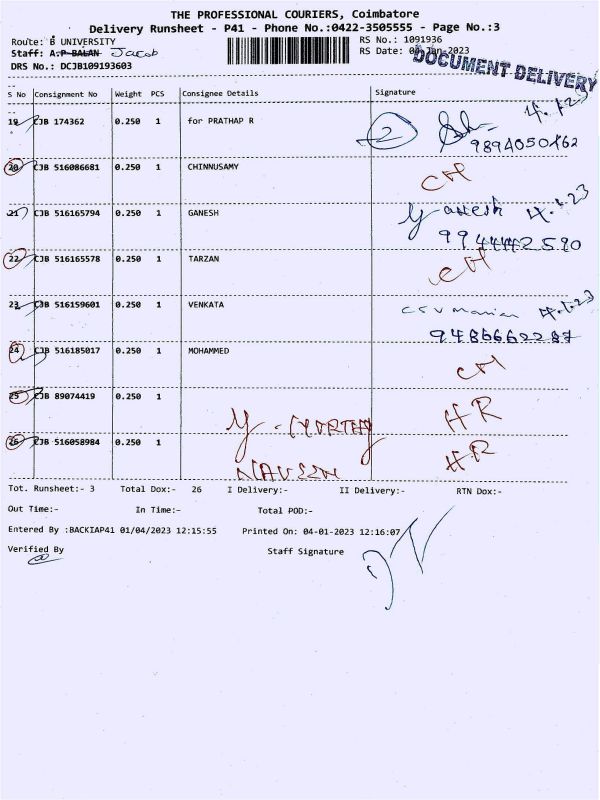 THE PROFESSIONAL COURIERS, Coimbatore
Delivery Runsheet - P41 - Phone No.:0422-3505555 - Page No.:3
Route: B UNIVERSITY RS No.: 1091936
Staff: A.P BALAN Jacob RS Date: 04-Jan-2023
DRS No.: DCJB109193603 DOCUMENT DELIVERY
S No Consignment No Weight PCS Consignee Details Signature
19 CJB 174362 0.250 1 for PRATHAP R 2 4.1.23
9894050162
20 CJB 516086681 0.250 1 CHINNUSAMY CH
21 CJB 516165794 0.250 1 GANESH Ganesh 4.1.23
9944442590
22 CJB 516165578 0.250 1 TARZAN CH
23 CJB 516159601 0.250 1 VENKATA 4.1.23
9486662287
24 CJB 516185017 0.250 1 MOHAMMED CH
25 CJB 89074419 0.250 1 HR
26 CJB 516058984 0.250 1 HR
NAVEEN
Tot. Runsheet:- 3 Total Dox:- 26 I Delivery:- II Delivery:- RTN Dox:-
Out Time:- In Time:- Total POD:-
Entered By :BACKIAP41 01/04/2023 12:15:55 Printed On: 04-01-2023 12:16:07
Verified By Staff Signature